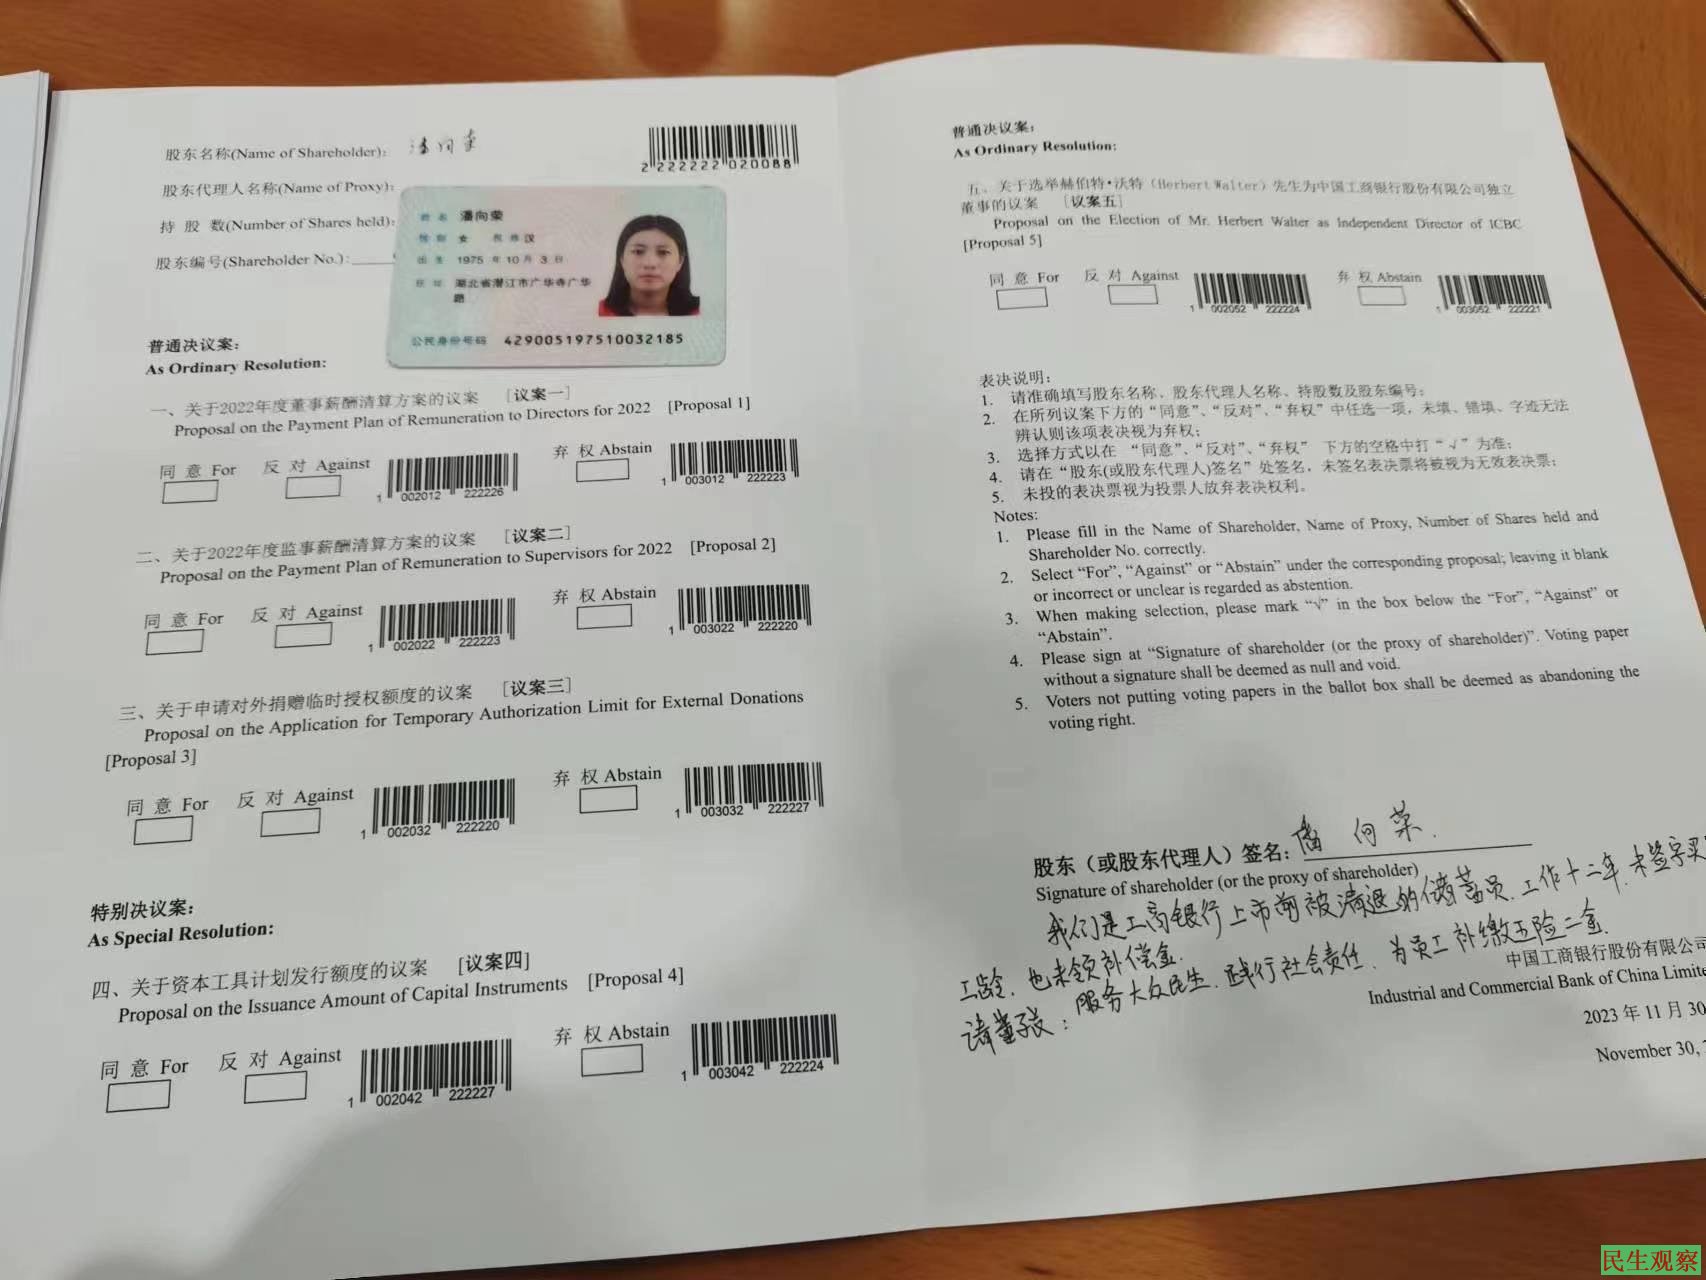 股东名称(Name of Shareholder): 潘向荣
2 222222 020088
股东代理人名称(Name of Proxy):
持 股 数(Number of Shares held):
股东编号(Shareholder No.):
姓名 潘向荣
性别 女 民族 汉
出生 1975 年 10 月 3 日
住址 湖北省潜江市广华寺广华
路
公民身份号码 429005197510032185
普通决议案：
As Ordinary Resolution:
一、关于2022年度董事薪酬清算方案的议案 [议案一]
Proposal on the Payment Plan of Remuneration to Directors for 2022 [Proposal 1]
同 意 For 反 对 Against 1 002012 222226 弃 权 Abstain 1 003012 222223
二、关于2022年度监事薪酬清算方案的议案 [议案二]
Proposal on the Payment Plan of Remuneration to Supervisors for 2022 [Proposal 2]
同 意 For 反 对 Against 1 002022 222223 弃 权 Abstain 1 003022 222220
三、关于申请对外捐赠临时授权额度的议案 [议案三]
Proposal on the Application for Temporary Authorization Limit for External Donations
[Proposal 3]
同 意 For 反 对 Against 1 002032 222220 弃 权 Abstain 1 003032 222227
特别决议案：
As Special Resolution:
四、关于资本工具计划发行额度的议案 [议案四]
Proposal on the Issuance Amount of Capital Instruments [Proposal 4]
同 意 For 反 对 Against 1 002042 222227 弃 权 Abstain 1 003042 222224
普通决议案：
As Ordinary Resolution:
五、关于选举赫伯特•沃特（Herbert Walter）先生为中国工商银行股份有限公司独立
董事的议案 [议案五]
Proposal on the Election of Mr. Herbert Walter as Independent Director of ICBC
[Proposal 5]
同 意 For 反 对 Against 1 002052 222224 弃 权 Abstain 1 003052 222221
表决说明：
1. 请准确填写股东名称、股东代理人名称、持股数及股东编号；
2. 在所列议案下方的“同意”、“反对”、“弃权”中任选一项，未填、错填、字迹无法
辨认则该项表决视为弃权；
3. 选择方式以在 “同意”、“反对”、“弃权” 下方的空格中打“√”为准；
4. 请在“股东(或股东代理人)签名”处签名，未签名表决票将被视为无效表决票；
5. 未投的表决票视为投票人放弃表决权利。
Notes:
1. Please fill in the Name of Shareholder, Name of Proxy, Number of Shares held and
Shareholder No. correctly.
2. Select “For”, “Against” or “Abstain” under the corresponding proposal; leaving it blank
or incorrect or unclear is regarded as abstention.
3. When making selection, please mark “√” in the box below the “For”, “Against” or
“Abstain”.
4. Please sign at “Signature of shareholder (or the proxy of shareholder)”. Voting paper
without a signature shall be deemed as null and void.
5. Voters not putting voting papers in the ballot box shall be deemed as abandoning the
voting right.
股东（或股东代理人）签名：潘向荣.
Signature of shareholder (or the proxy of shareholder)
我们是工商银行上市前被清退的储蓄员.工作十二年.未签字买
工龄.也未领补偿金.
请董事长：服务大众民生.践行社会责任.为员工补缴五险二金.
中国工商银行股份有限公司
Industrial and Commercial Bank of China Limite
2023 年 11 月 30
November 30,
民生观察